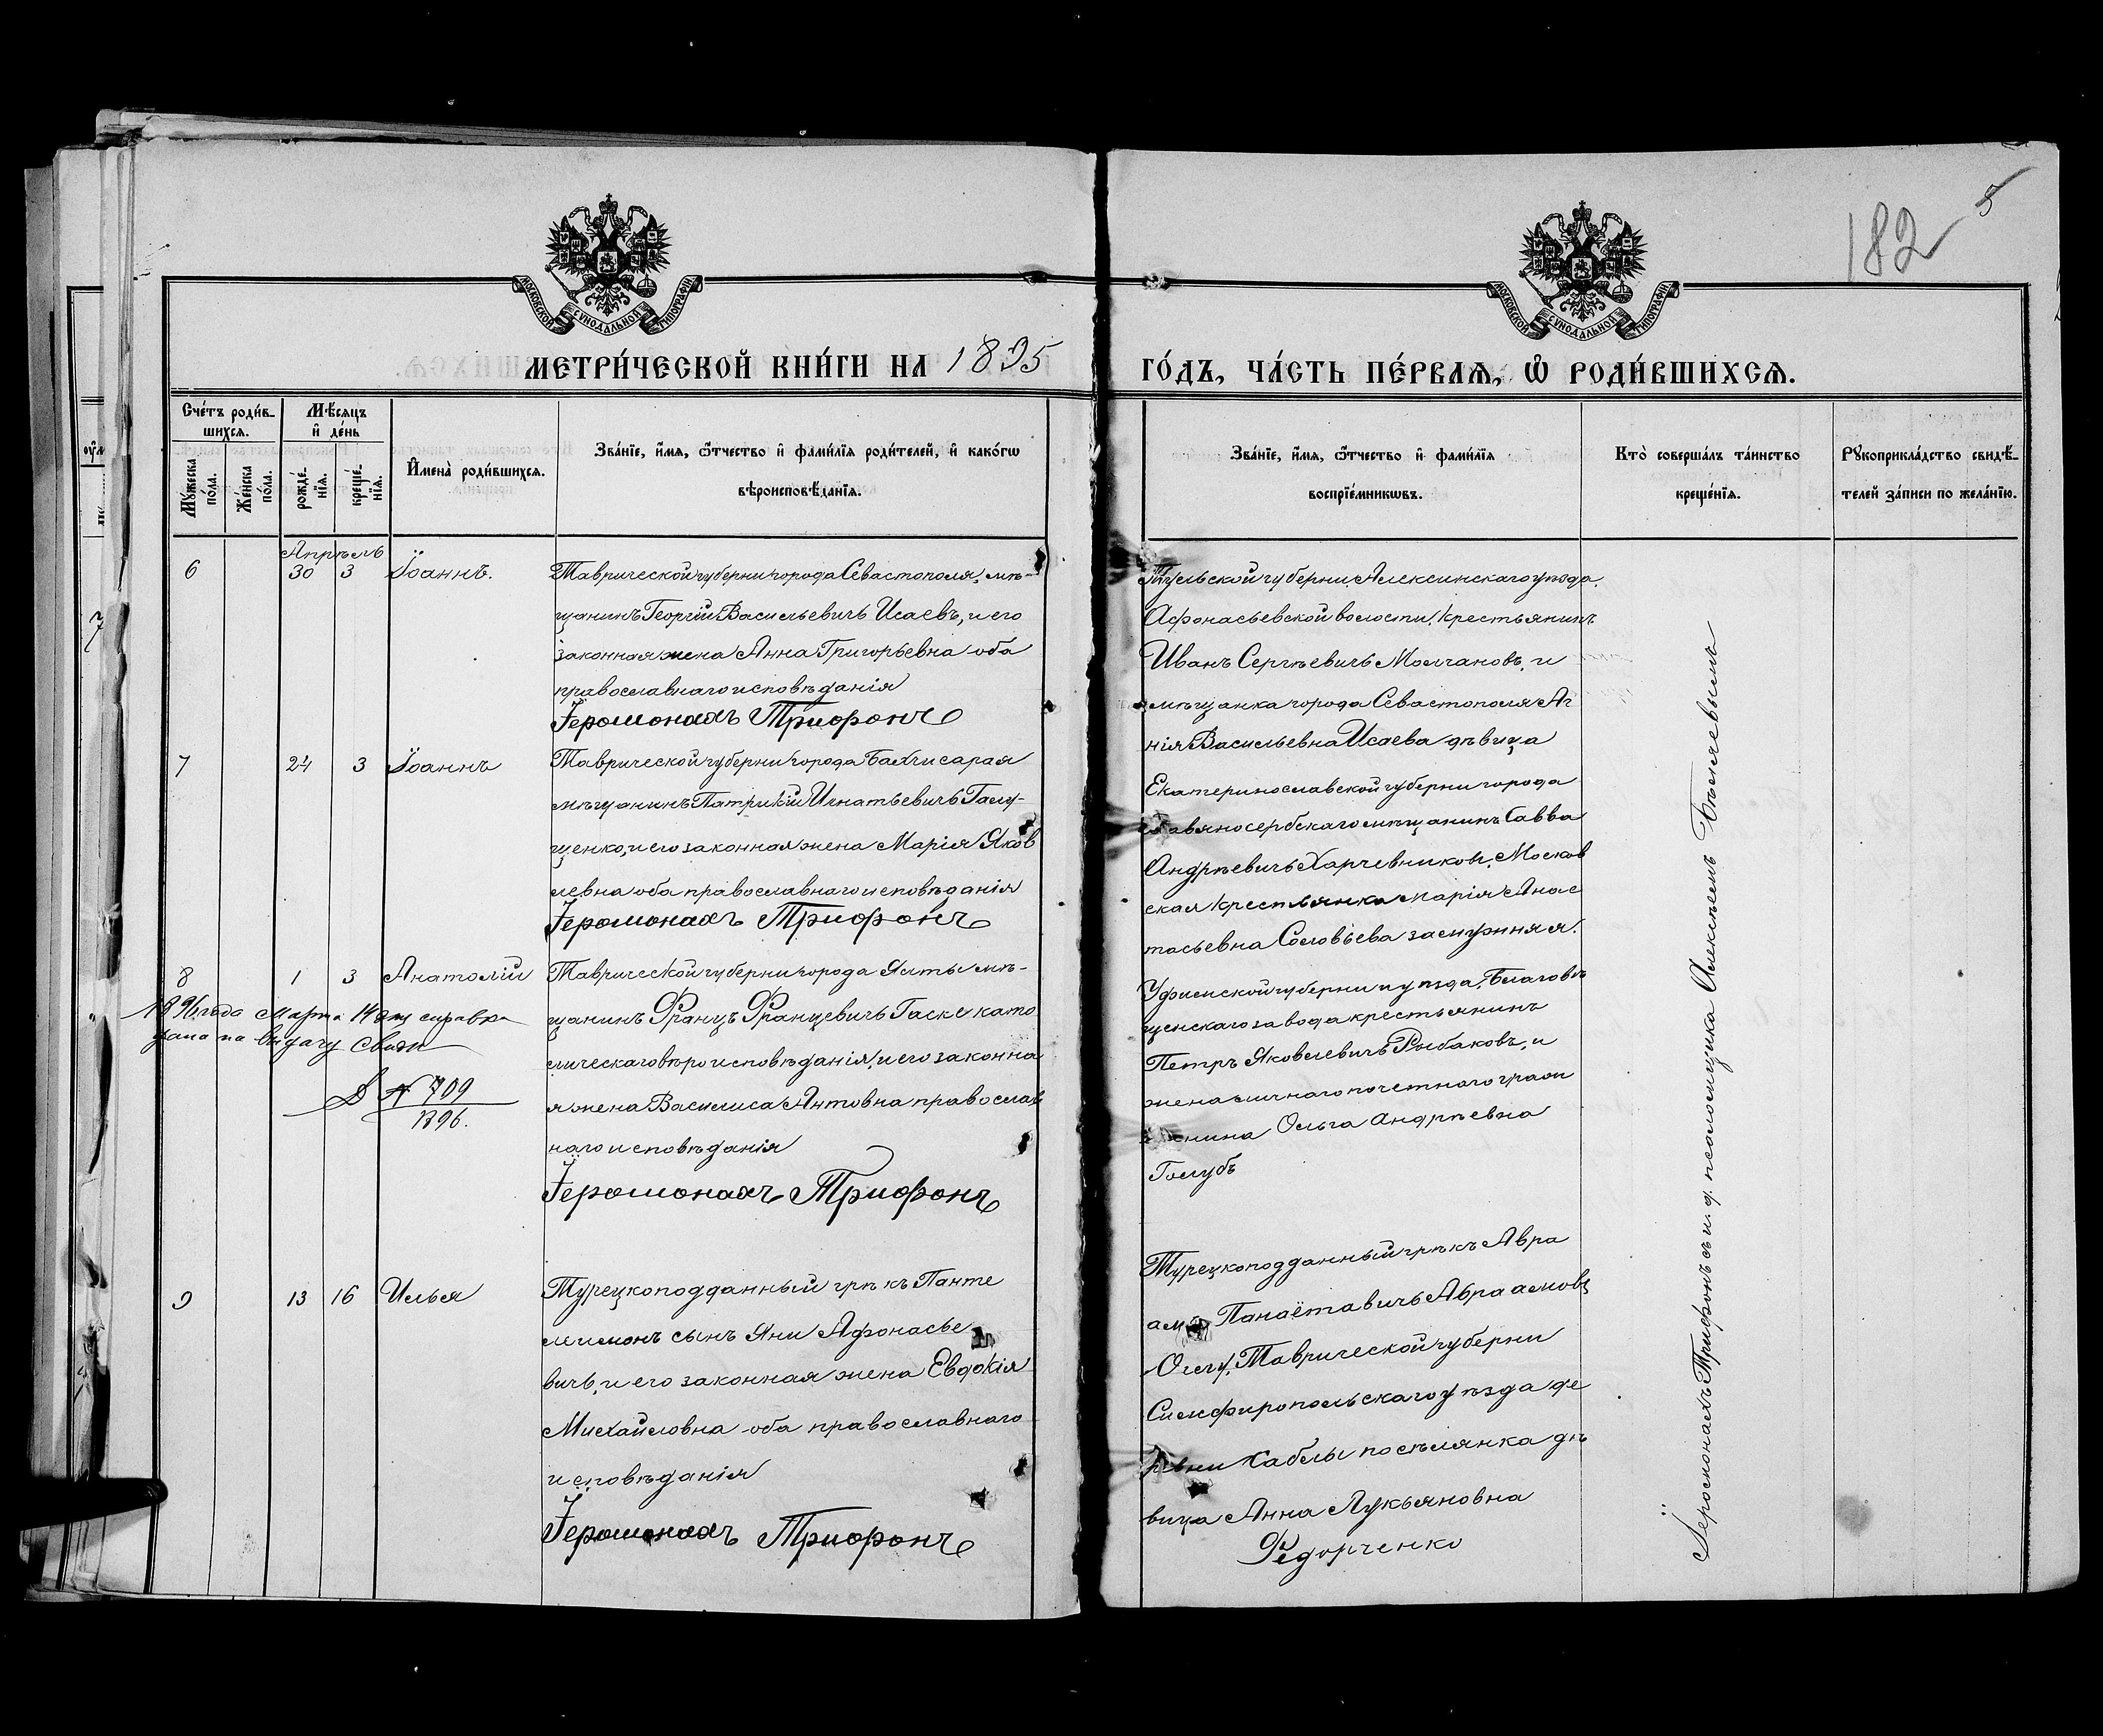 182
5
МОСКОВСКОЙ СѴНОДАЛЬНОЙ ТИПОГРАФІИ
МОСКОВСКОЙ СѴНОДАЛЬНОЙ ТИПОГРАФІИ
МЕТРИ́ЧЕСКОЙ КНИ́ГИ НА 1895
ГО́ДЪ, ЧА́СТЬ ПЕ́РВАѦ, Ѡ҆ РОДИ́ВШИХСѦ.
Сче́тъ роди́в-
шихсѧ.
Мѣ́сѧцъ
и҆ де́нь
Мꙋ́жеска
по́ла.
Же́нска
по́ла.
рожде́-
нїѧ.
креще́-
нїѧ.
И҆мена̀ роди́вшихсѧ.
Зва́нїе, и҆́мѧ, ѻ҆́тчество и҆ фами́лїѧ роди́телей, и҆ како́гѡ
вѣроисповѣ́данїѧ.
Зва́нїе, и҆́мѧ, ѻ҆́тчество и҆ фами́лїѧ
воспрїе́мникѡвъ.
Кто̀ соверша́лъ та́инство
креще́нїѧ.
Рꙋкоприкла́дство свидѣ́-
телей за́писи по жела́нїю.
Апрѣль
6 30 3 Іоаннъ.
Таврической губерни города Севастополя, мѣ-
щанинъ Георгій Васильевичъ Исаевъ, и его
законная жена Анна Григорьевна оба
православнаго исповѣданія
Іеромонахъ Трифонъ
Тульской губерни, Алексинскаго уѣзда,
Афонасьевской волости, крестьянинъ
Иванъ Сергѣевичъ Молчановъ, и
мѣщанка города Севастополя Аг
нія Васильевна Исаева дѣвица
7 24 3 Іоаннъ
Таврической губерни города Бахчисарая
мѣщанинъ Патрикій Игнатьевичъ Галу-
щенко, и его законная жена Марія Яков
левна оба православнаго исповѣданія
Іеромонахъ Трифонъ
Екатеринославской губерни города
Славяносербскаго мѣщанинъ Савва
Андрѣевичъ Харчевников, Москов
ская крестьянка Марія Анас
тасьевна Соловьева замужняя.
8 1 3 Анатолій
1896 года Марта 14 дня справка
дана на выдачу Свидѣ
№ 709
1896.
Таврической губерни города Ялты мѣ-
щанинъ Францъ Францевичъ Гаске като
лическаго вѣроисповѣданія, и его законна
я жена Василиса Антовна православ
наго исповѣданія
Іеромонахъ Трифонъ
Уфимской губерни и уѣзда, Благовѣ
щенскаго завода крестьянинъ
Петръ Яковлевичъ Рыбаковъ, и
жена личнаго почетнаго гражи
данина Ольга Андрѣевна
Голубь
9 13 16 Илья
Турецкоподданный грѣкъ Панте
лиимонъ сынъ Яни Афонасье
вичъ, и его законная жена Евдокія
Михайловна оба православнаго
исповѣданія
Іеромонахъ Трифонъ
Турецкоподданный грѣкъ Авра
амъ Панаётавичъ Абраамовъ
Оглу, Таврической губерни
Симфиропольскаго уѣзда де
ревни Саблы посѣлянка дѣ
вица Анна Лукьяновна
Федорченко
Іеромонахъ Трифонъ съ и. д. псаломщика Алексѣемъ